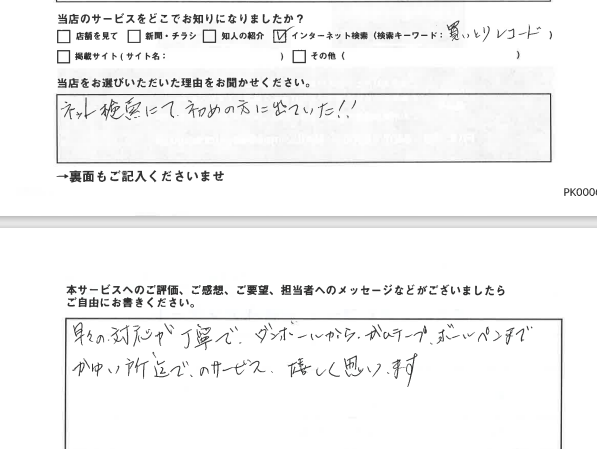 当店のサービスをどこでお知りになりましたか？
□ 店舗を見て □ 新聞・チラシ □ 知人の紹介 ☑ インターネット検索（検索キーワード：買いとりレコード ）
□ 掲載サイト（サイト名： ） □ その他（ ）
当店をお選びいただいた理由をお聞かせください。
ネット検索にて、初めの方に出ていた!!
→裏面もご記入くださいませ
PK000
本サービスへのご評価、ご感想、ご要望、担当者へのメッセージなどがございましたら
ご自由にお書きください。
早々の対応が丁寧で、ダンボールから、ガムテープ、ボールペンまで
かゆい所迄で、のサービス、嬉しく思います